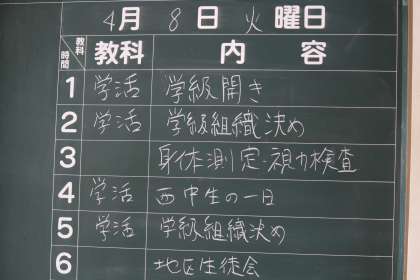 4月 8日 火曜日
教科 時間 教科 内容
1 学活 学級開き
2 学活 学級組織決め
3 身体測定・視力検査
4 学活 西中生の一日
5 学活 学級組織決め
6 地区生徒会